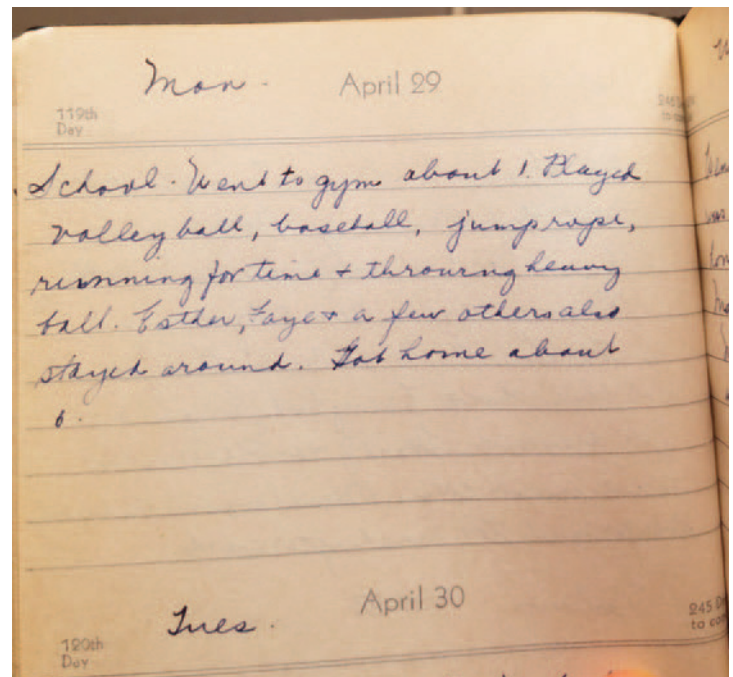 Mon. April 29
119th
Day
School. Went to gym about 1. Played
volley ball, baseball, jump rope,
running for time + throwing heavy
ball. Esther, Faye + a few others also
stayed around. Got home about
6.
Tues. April 30
120th
Day
245
to